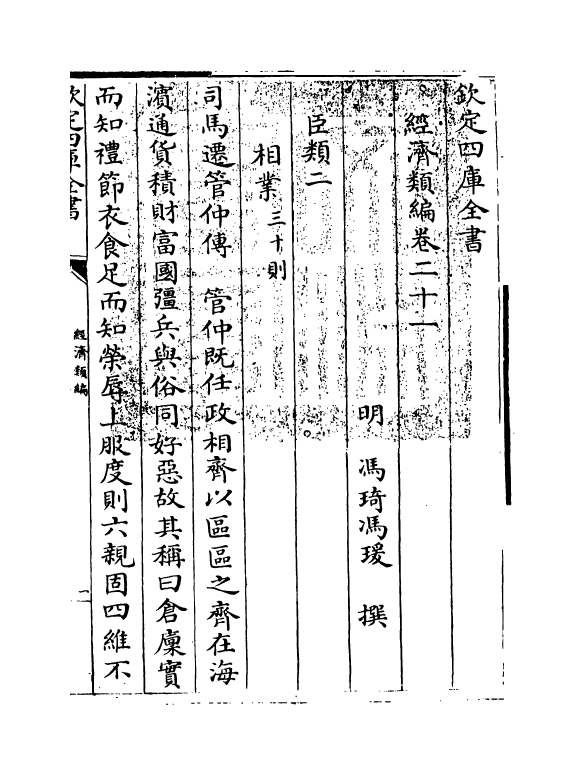 欽定四庫全書
經濟類編卷二十一
明 馮琦馮瑗 撰
臣類二
相業三十則
司馬遷管仲傳 管仲既任政相齊以區區之齊在海
濵通貨積財富國彊兵與俗同好惡故其稱曰倉廩實
而知禮節衣食足而知榮辱上服度則六親固四維不
欽定四庫全書
經濟類編
一